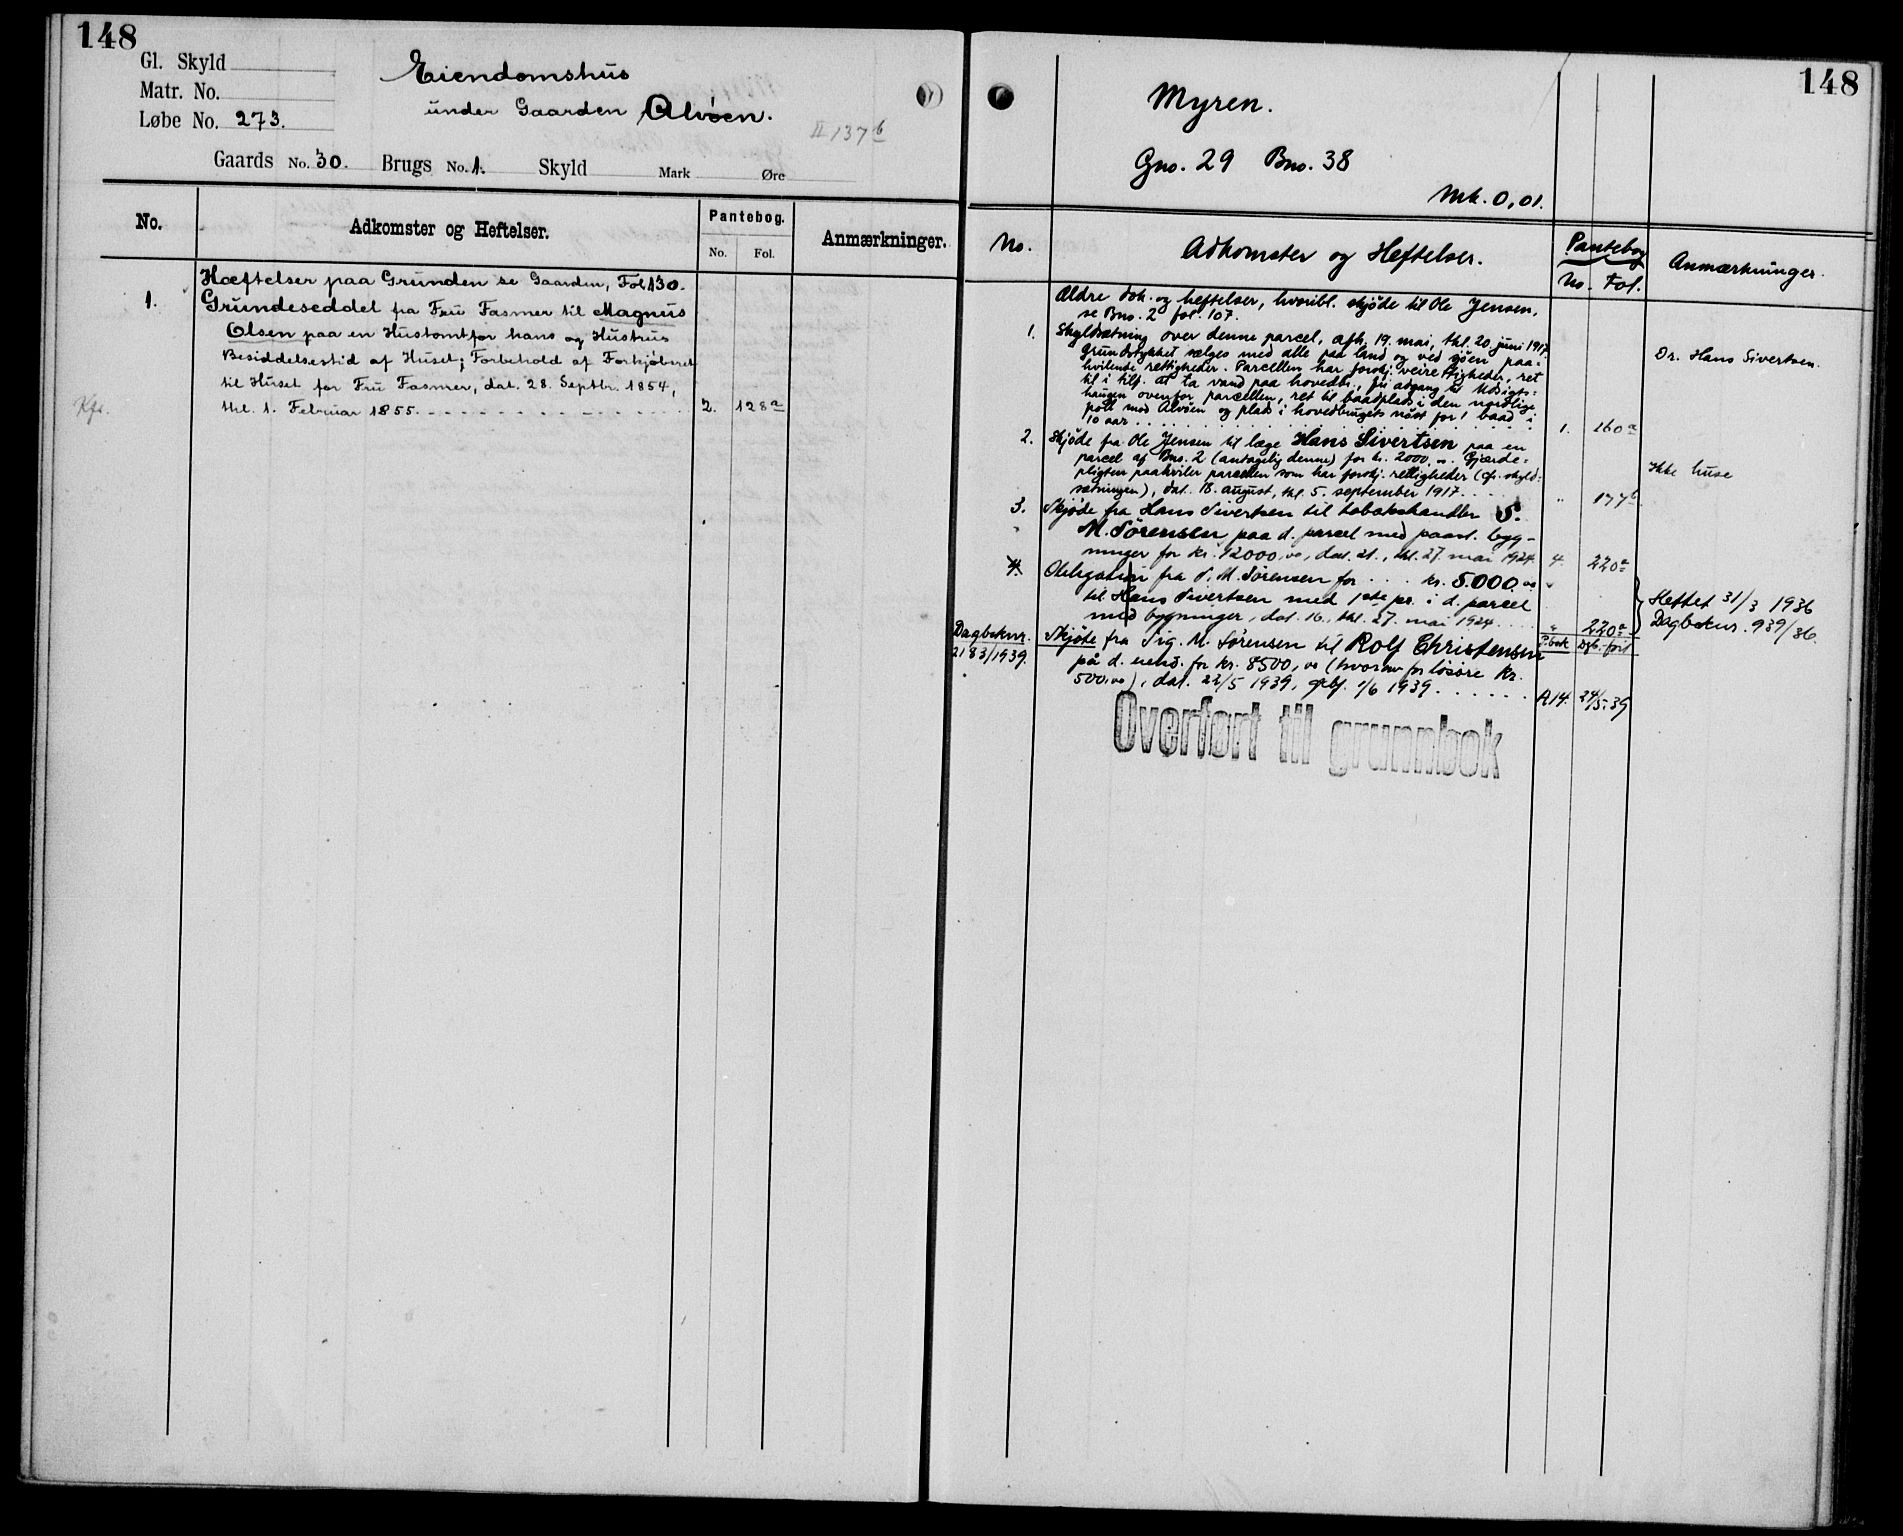 148
Gl. Skyld
Matr. No.
Løbe No. 273.
Eiendomshus
under Gaarden Alvöen.
II 137 b
Gaards No. 30. Brugs No. 1. Skyld Mark Øre
No. Adkomster og Heftelser. Pantebog. Anmærkninger.
No. Fol.
Hæftelser paa Grunden se Gaarden, Fol. 130.
1. Grundeseddel fra Fru Fasmer til Magnus
Olsen paa en Hustomt for hans og Hustrus
Besiddelsestid af Huset; Forbehold af Forkjøbsret
til Huset for Fru Fasmer, dat. 28. Septbr. 1854,
Kfr. thl. 1. Februar 1855. 2. 128a
148
Myren.
Gno. 29 Bno. 38
Mk. 0,01.
No. Adkomster og Heftelser. Pantebog Anmærkninger.
No. Fol.
Ældre dok. og heftelser, hvoribl. skjøde til Ole Jensen,
se Bno. 2 fol. 107.
1. Skyldsætning over denne parcel, afh. 19. mai, thl. 20. juni 1917.
Grundstykket sælges med alle paa land og ved sjøen paa-
hvilende rettigheder. Parcellen har forskj. veirettigheder, ret
til i tilf. at ta vand paa hovedbr., fri adgang til Udsigts-
haugen ovenfor parcellen, ret til baadplads i den nordlige
poll mod Alvöen og plads i hovedbrugets nøst for 1 baad i
10 aar 1. 160a
Dr. Hans Sivertsen.
2. Skjøde fra Ole Jensen til læge Hans Sivertsen paa en
parcel af Bno. 2 (antagelig denne) for kr. 2000,00. Gjærde-
pligten paahviler parcellen som har forskj. rettigheder (cfr. skyld-
sætningen), dat. 18. august, thl. 5. september 1917. " 177b
Ikke huse
3. Skjøde fra Hans Sivertsen til tobakshandler S.
M. Sörensen paa d. parcel med paast. byg-
ninger for kr. 12000,00, dat. 21., thl. 27. mai 1924. 4. 220a
4. Obligation fra S. M. Sörensen for kr. 5.000,00 "
til Hans Sivertsen med 1ste pr. i d. parcel
med bygninger, dat. 16., thl. 27. mai 1924. " 220a
Slettet 31/3 1936
Dagboknr. 939/36.
P.bok Dgb.ført
Dagboknr.
2183/1939. Skjöte fra Sig. M. Sörensen til Rolf Christensen
på d. eiend. for kr. 8500,00 (hvorav for lösöre kr.
500,00), dat. 22/5 1939, 1/6 1939. A14. 24/5-39
Overført til grunnbok